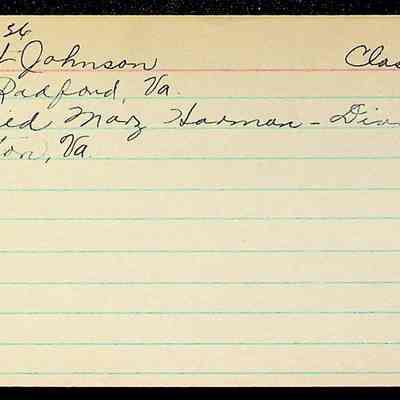 36
t Johnson Clas
Radford, Va.
ied Mary Harman - Div
ton, Va.